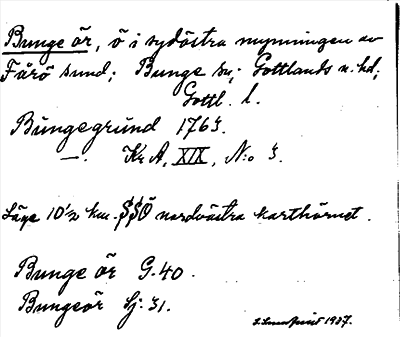 Bunge ör, ö i sydöstra mynningen av
Fårö sund; Bunge sn; Gottlands n. hd;
Gottl. l.
Bungegrund 1763.
—. Kr A, XIX, N:o 3.
Läge 10 1/2 km. SSÖ nordvästra karthörnet.
Bunge ör G. 40.
Bungeör Sj: 31.
1937.